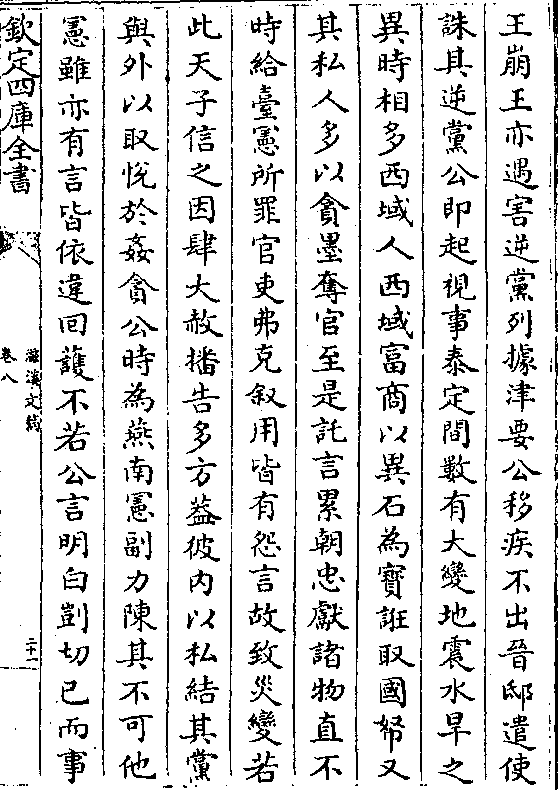 王崩王亦遇害逆黨列據津要公移疾不出晉邸遣使
誅其逆黨公即起視事泰定間數有大變地震水旱之
異時相多西域人西域富商以異石為寶誑取國帑又
其私人多以貪墨奪官至是託言累朝忠獻諸物直不
時給臺憲所罪官吏弗克叙用皆有怨言故致災變若
此天子信之因肆大赦播告多方葢彼内以私結其黨
與外以取悅於姦貪公時為燕南憲副力陳其不可他
憲雖亦有言皆依違回護不若公言明白剴切已而事
欽定四庫全書
滋溪文稿
卷八
二十一